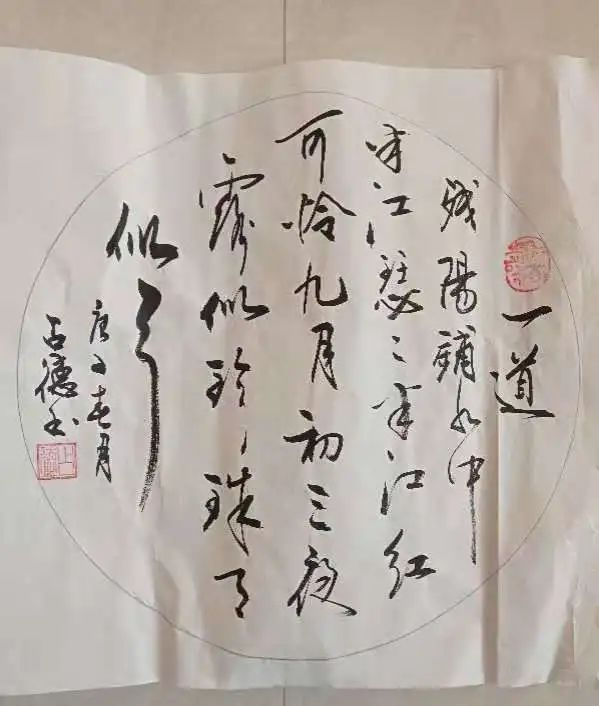 一道
残陽鋪水中
半江瑟瑟半江红
可怜九月初三夜
露似珍珠月
似弓
庚子春月
德书